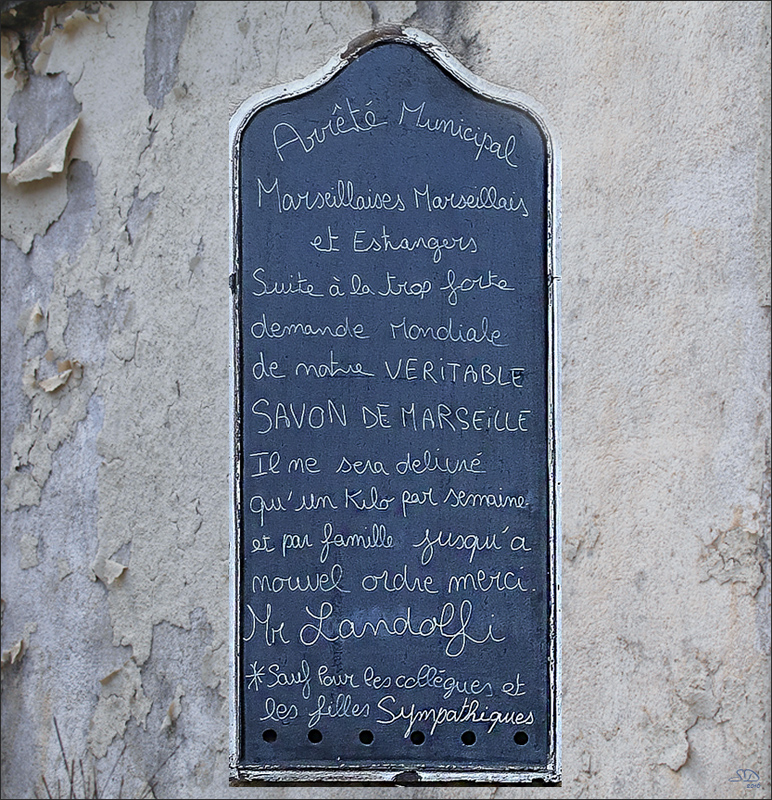 Arrêté Municipal
Marseillaises Marseillais
et Estrangers
Suite à la trop forte
demande Mondiale
de notre VERITABLE
SAVON DE MARSEILLE
Il ne sera delivré
qu'un Kilo par semaine
et par famille jusqu'a
nouvel ordre merci.
Mr Landolfi
*Sauf Pour les collègues et
les filles Sympathiques